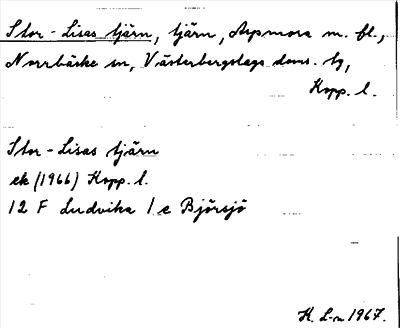 Stor-Lisas tjärn, tjärn, Aspmora m. fl.,
Norrbärke sn, Västerbergslags doms. tg,
Kopp. l.
Stor-Lisas tjärn
ek (1966) Kopp. l.
12 F Ludvika 1 e Björsjö
H. L-n 1967.